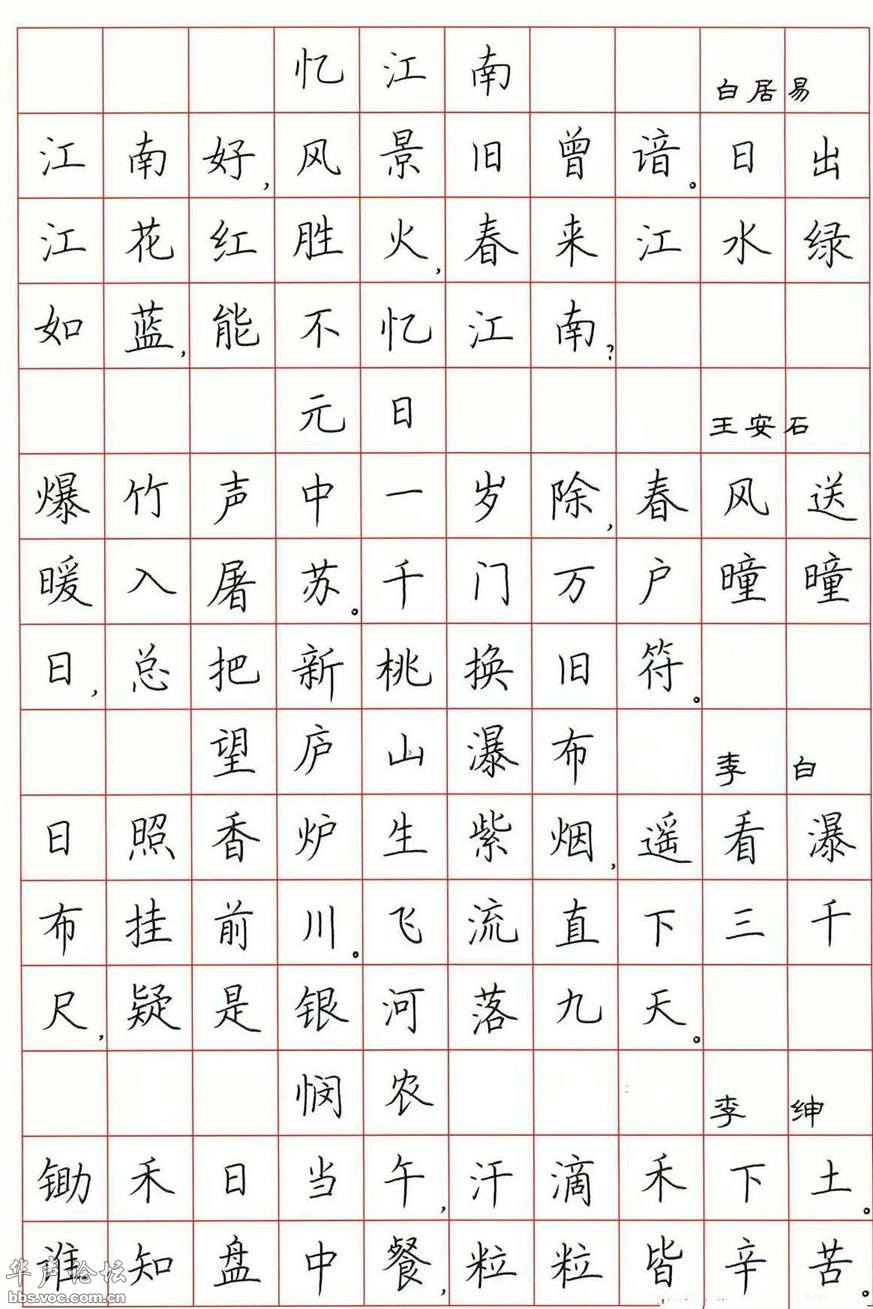 忆江南 白居易
江南好,风景旧曾谙。日出
江花红胜火,春来江水绿
如蓝,能不忆江南?
元日 王安石
爆竹声中一岁除,春风送
暖入屠苏。千门万户曈曈
日,总把新桃换旧符。
望庐山瀑布 李白
日照香炉生紫烟,遥看瀑
布挂前川。飞流直下三千
尺,疑是银河落九天。
悯农 李绅
锄禾日当午,汗滴禾下土。
谁知盘中餐,粒粒皆辛苦。
华声论坛
bbs.voc.com.cn